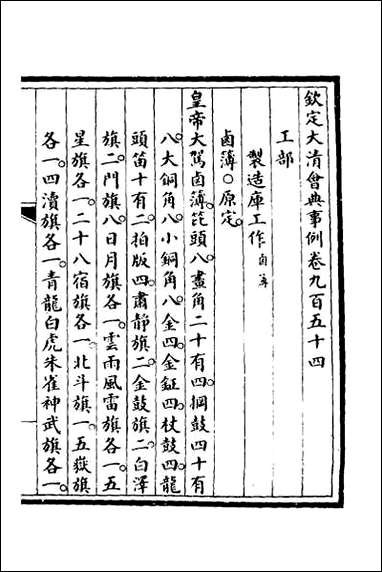 欽定大清會典事例卷九百五十四
工部
製造庫工作 鹵簿
鹵簿○原定。
皇帝大駕鹵簿。箆頭八。畫角二十有四。掆鼓四十有
八。大銅角八。小銅角八。金四。金鉦四。杖鼓四。龍
頭笛十有二。拍版四。肅靜旗二。金鼓旗二。白澤
旗二。門旗八。日月旗各一。雲雨風雷旗各一。五
星旗各一。二十八宿旗各一。北斗旗一。五嶽旗
各一。四瀆旗各一。青龍白虎朱雀神武旗各一。